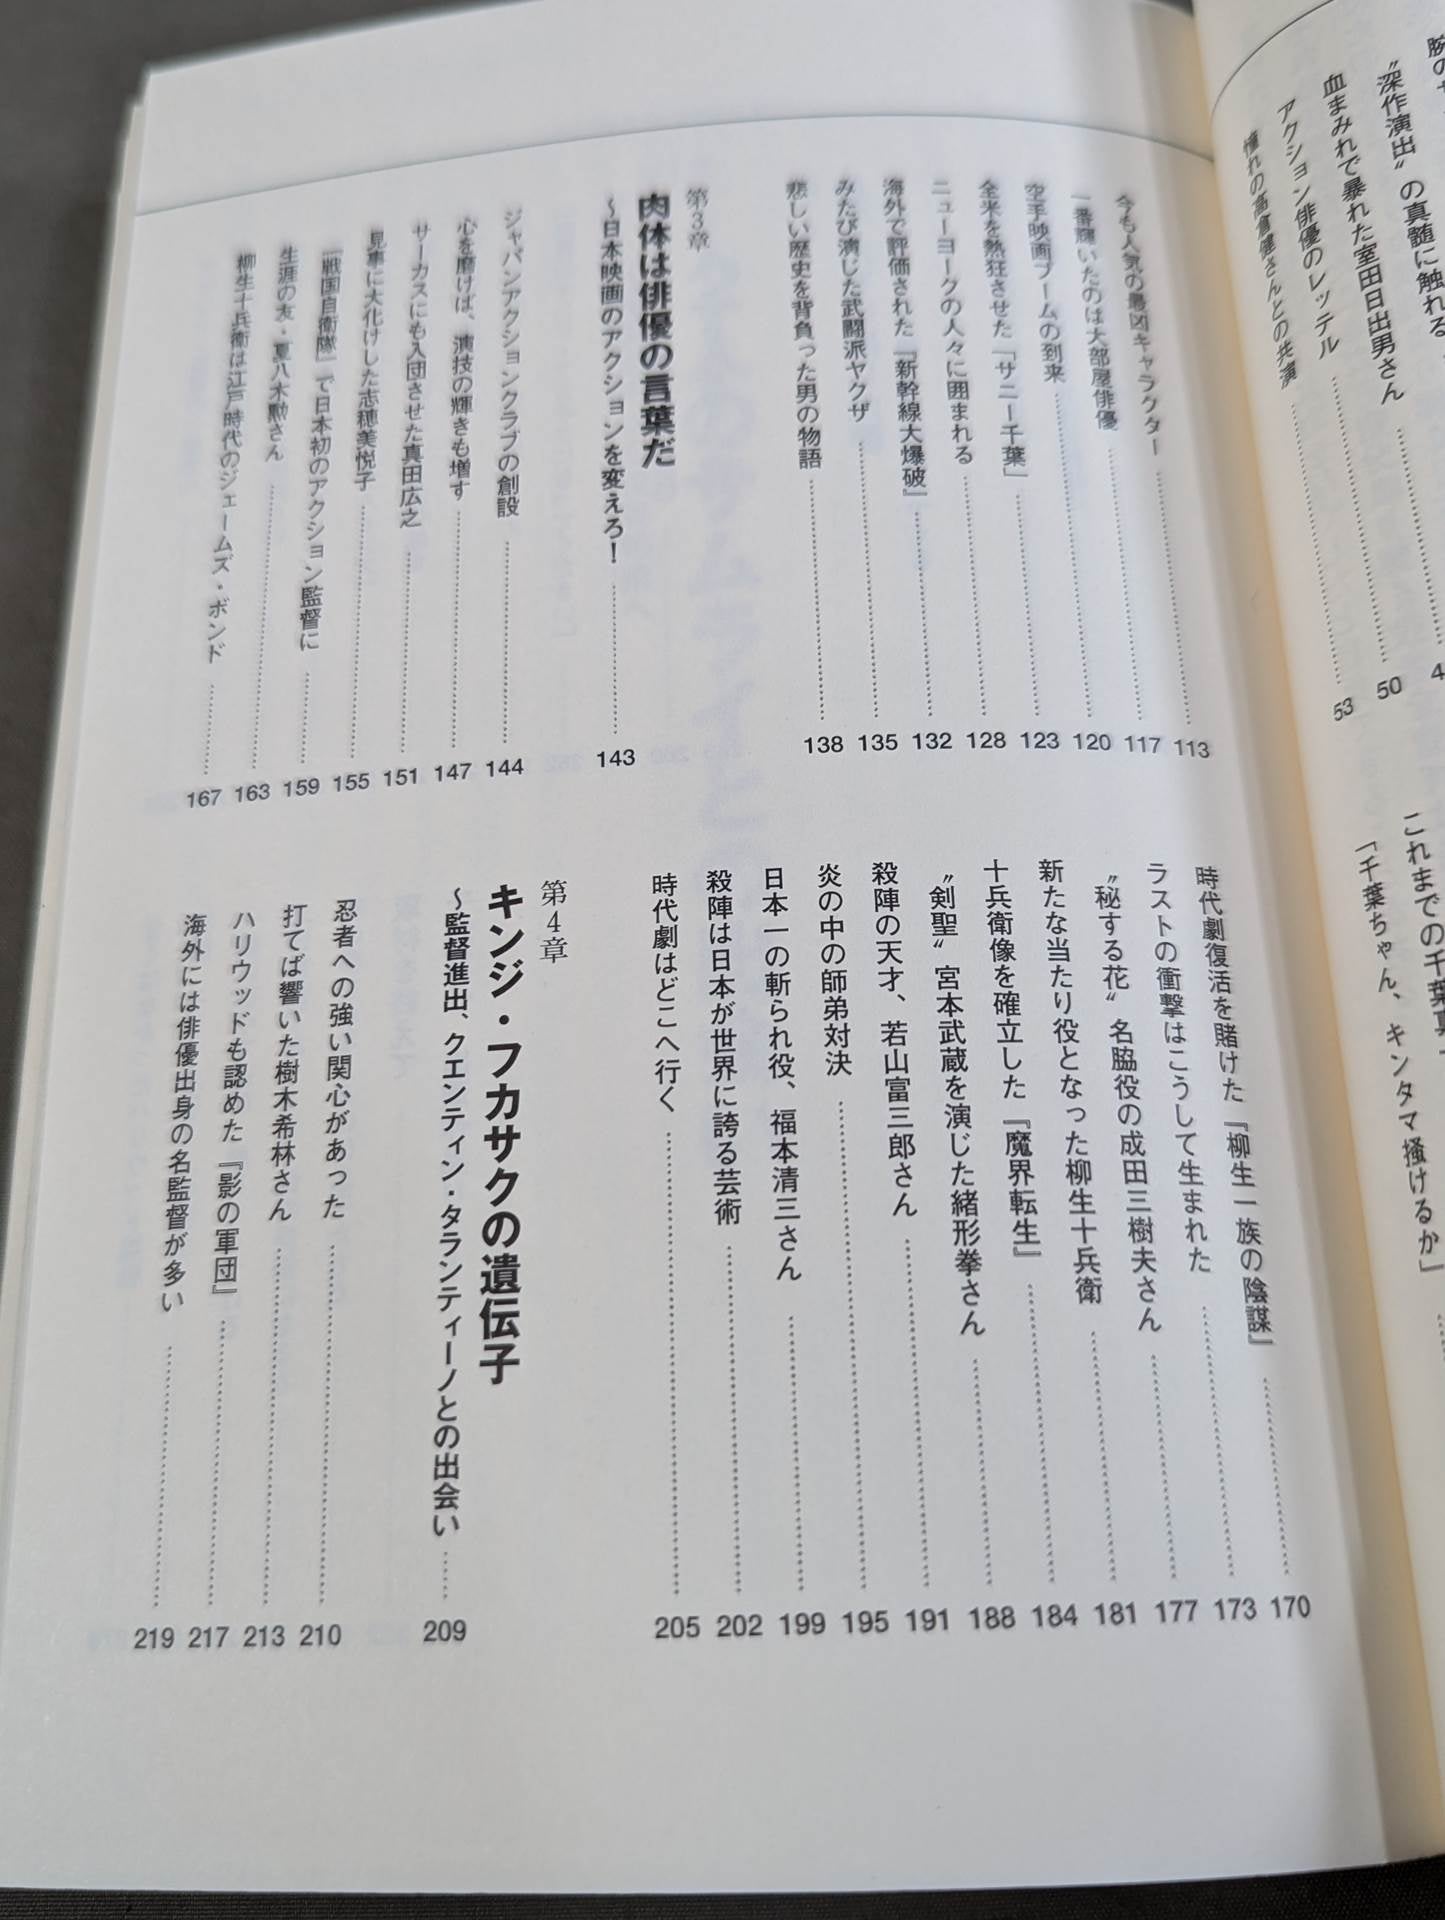 〝深作演出〟の真髄に触れる
血まみれで暴れた室田日出男さん 50
アクション俳優のレッテル 53
憧れの高倉健さんとの共演
これまでの千葉真一
「千葉ちゃん、キンタマ掻けるか」
今も人気の最凶キャラクター 113
一番輝いたのは大部屋俳優 117
空手映画ブームの到来 120
全米を熱狂させた「サニー千葉」 123
ニューヨークの人々に囲まれる 128
海外で評価された『新幹線大爆破』 132
みたび演じた武闘派ヤクザ 135
悲しい歴史を背負った男の物語 138
第3章
肉体は俳優の言葉だ
～日本映画のアクションを変えろ！ 143
ジャパンアクションクラブの創設 144
心を磨けば、演技の輝きも増す 147
サーカスにも入団させた真田広之 151
見事に大化けした志穂美悦子 155
『戦国自衛隊』で日本初のアクション監督に 159
生涯の友・夏八木勲さん 163
柳生十兵衛は江戸時代のジェームズ・ボンド 167
時代劇復活を賭けた『柳生一族の陰謀』 170
ラストの衝撃はこうして生まれた 173
〝秘する花〟名脇役の成田三樹夫さん 177
新たな当たり役となった柳生十兵衛 181
十兵衛像を確立した『魔界転生』 184
〝剣聖〟宮本武蔵を演じた緒形拳さん 188
殺陣の天才、若山富三郎さん 191
炎の中の師弟対決 195
日本一の斬られ役、福本清三さん 199
殺陣は日本が世界に誇る芸術 202
時代劇はどこへ行く 205
第4章
キンジ・フカサクの遺伝子
～監督進出、クエンティン・タランティーノとの出会い 209
忍者への強い関心があった 210
打てば響いた樹木希林さん 213
ハリウッドも認めた『影の軍団』 217
海外には俳優出身の名監督が多い 219